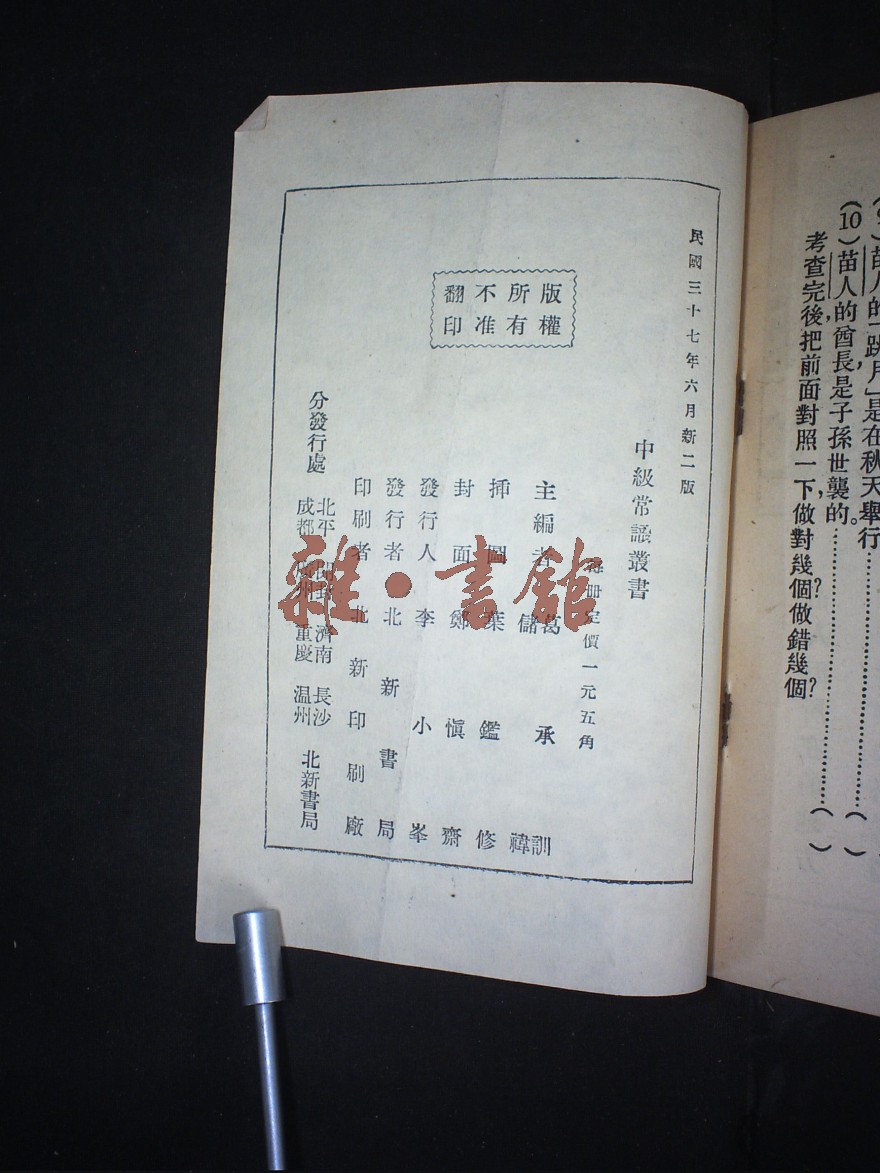 (10)苗人的酋長是子孫世襲的。………………( )
考查完後,把前面對照一下,做對幾個?做錯幾個?
民國三十七年六月新二版
版權
所有
不准
翻印
中級常識叢書
每册定價一元五角
主編者 葛承訓
儲禕
挿圖 葉鑑修
封面 鄭愼齋
發行人 李小峯
發行者 北新書局
印刷者 北新印刷廠
分發行處
北平 開封 濟南 長沙
成都 廣州 重慶 温州
北新書局
雜·書館